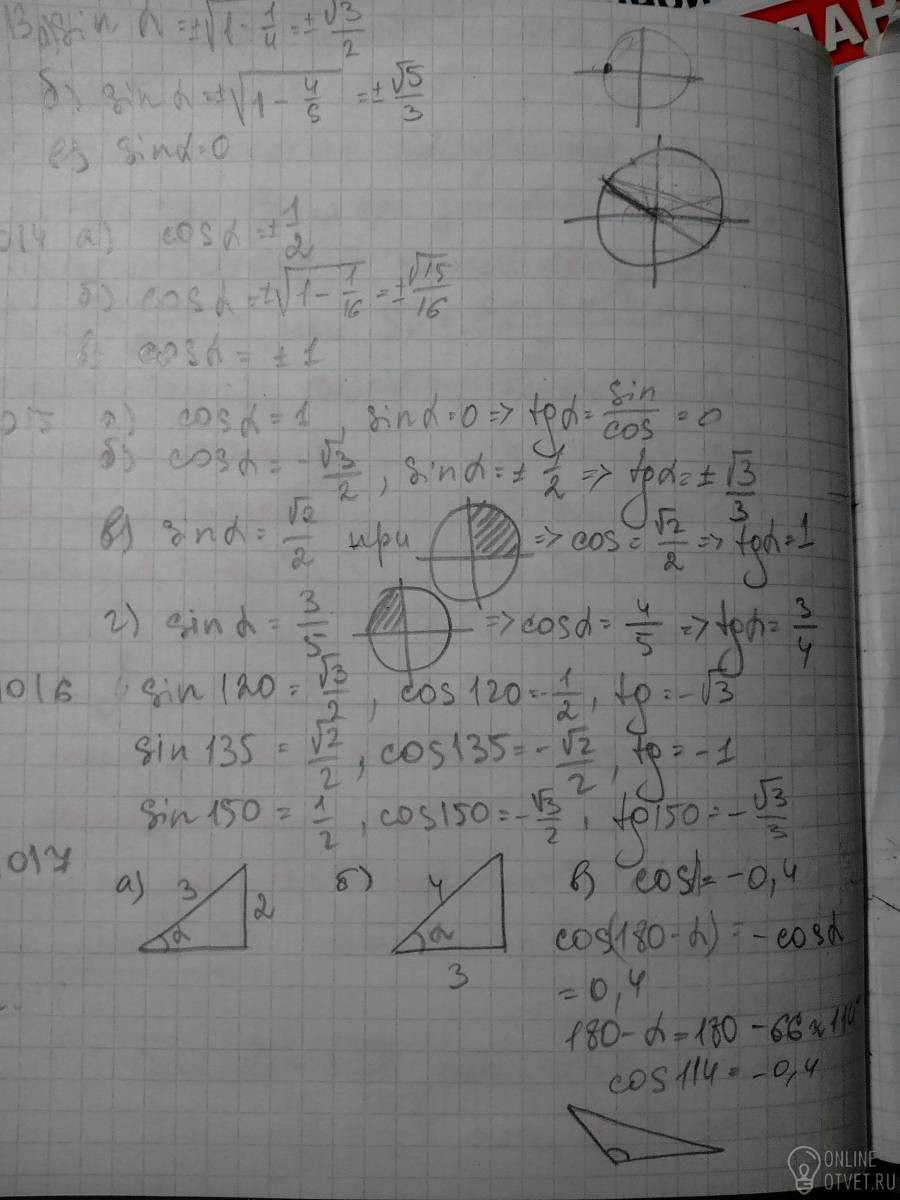 ЛАН
13 а) sin α = ±√1 - 1/4 = ±√3/2
б) sin α = ±√1 - 4/5 = ±√5/3
в) sin α = 0
014 а) cos α = ±1/2
б) cos α = ±√1 - 1/16 = ±√15/16
в) cos α = ±1
а) cos α = 1, sin α = 0 => tg α = sin/cos = 0
б) cos α = -√3/2, sin α = ±1/2 => tg α = ±√3/3
в) sin α = √2/2 при => cos = √2/2 => tg α = 1
г) sin α = 3/5 => cos α = 4/5 => tg α = 3/4
1016 sin 120 = √3/2, cos 120 = -1/2, tg = -√3
sin 135 = √2/2, cos 135 = -√2/2, tg = -1
sin 150 = 1/2, cos 150 = -√3/2, tg 150 = -√3/3
017
а) 3 2 α
б) 4 α 3
в) cos α = -0,4
cos(180 - α) = -cos α
= 0,4
180 - α = 180 - 66 ≈ 114°
cos 114 = -0,4
ONLINE
OTVET.RU